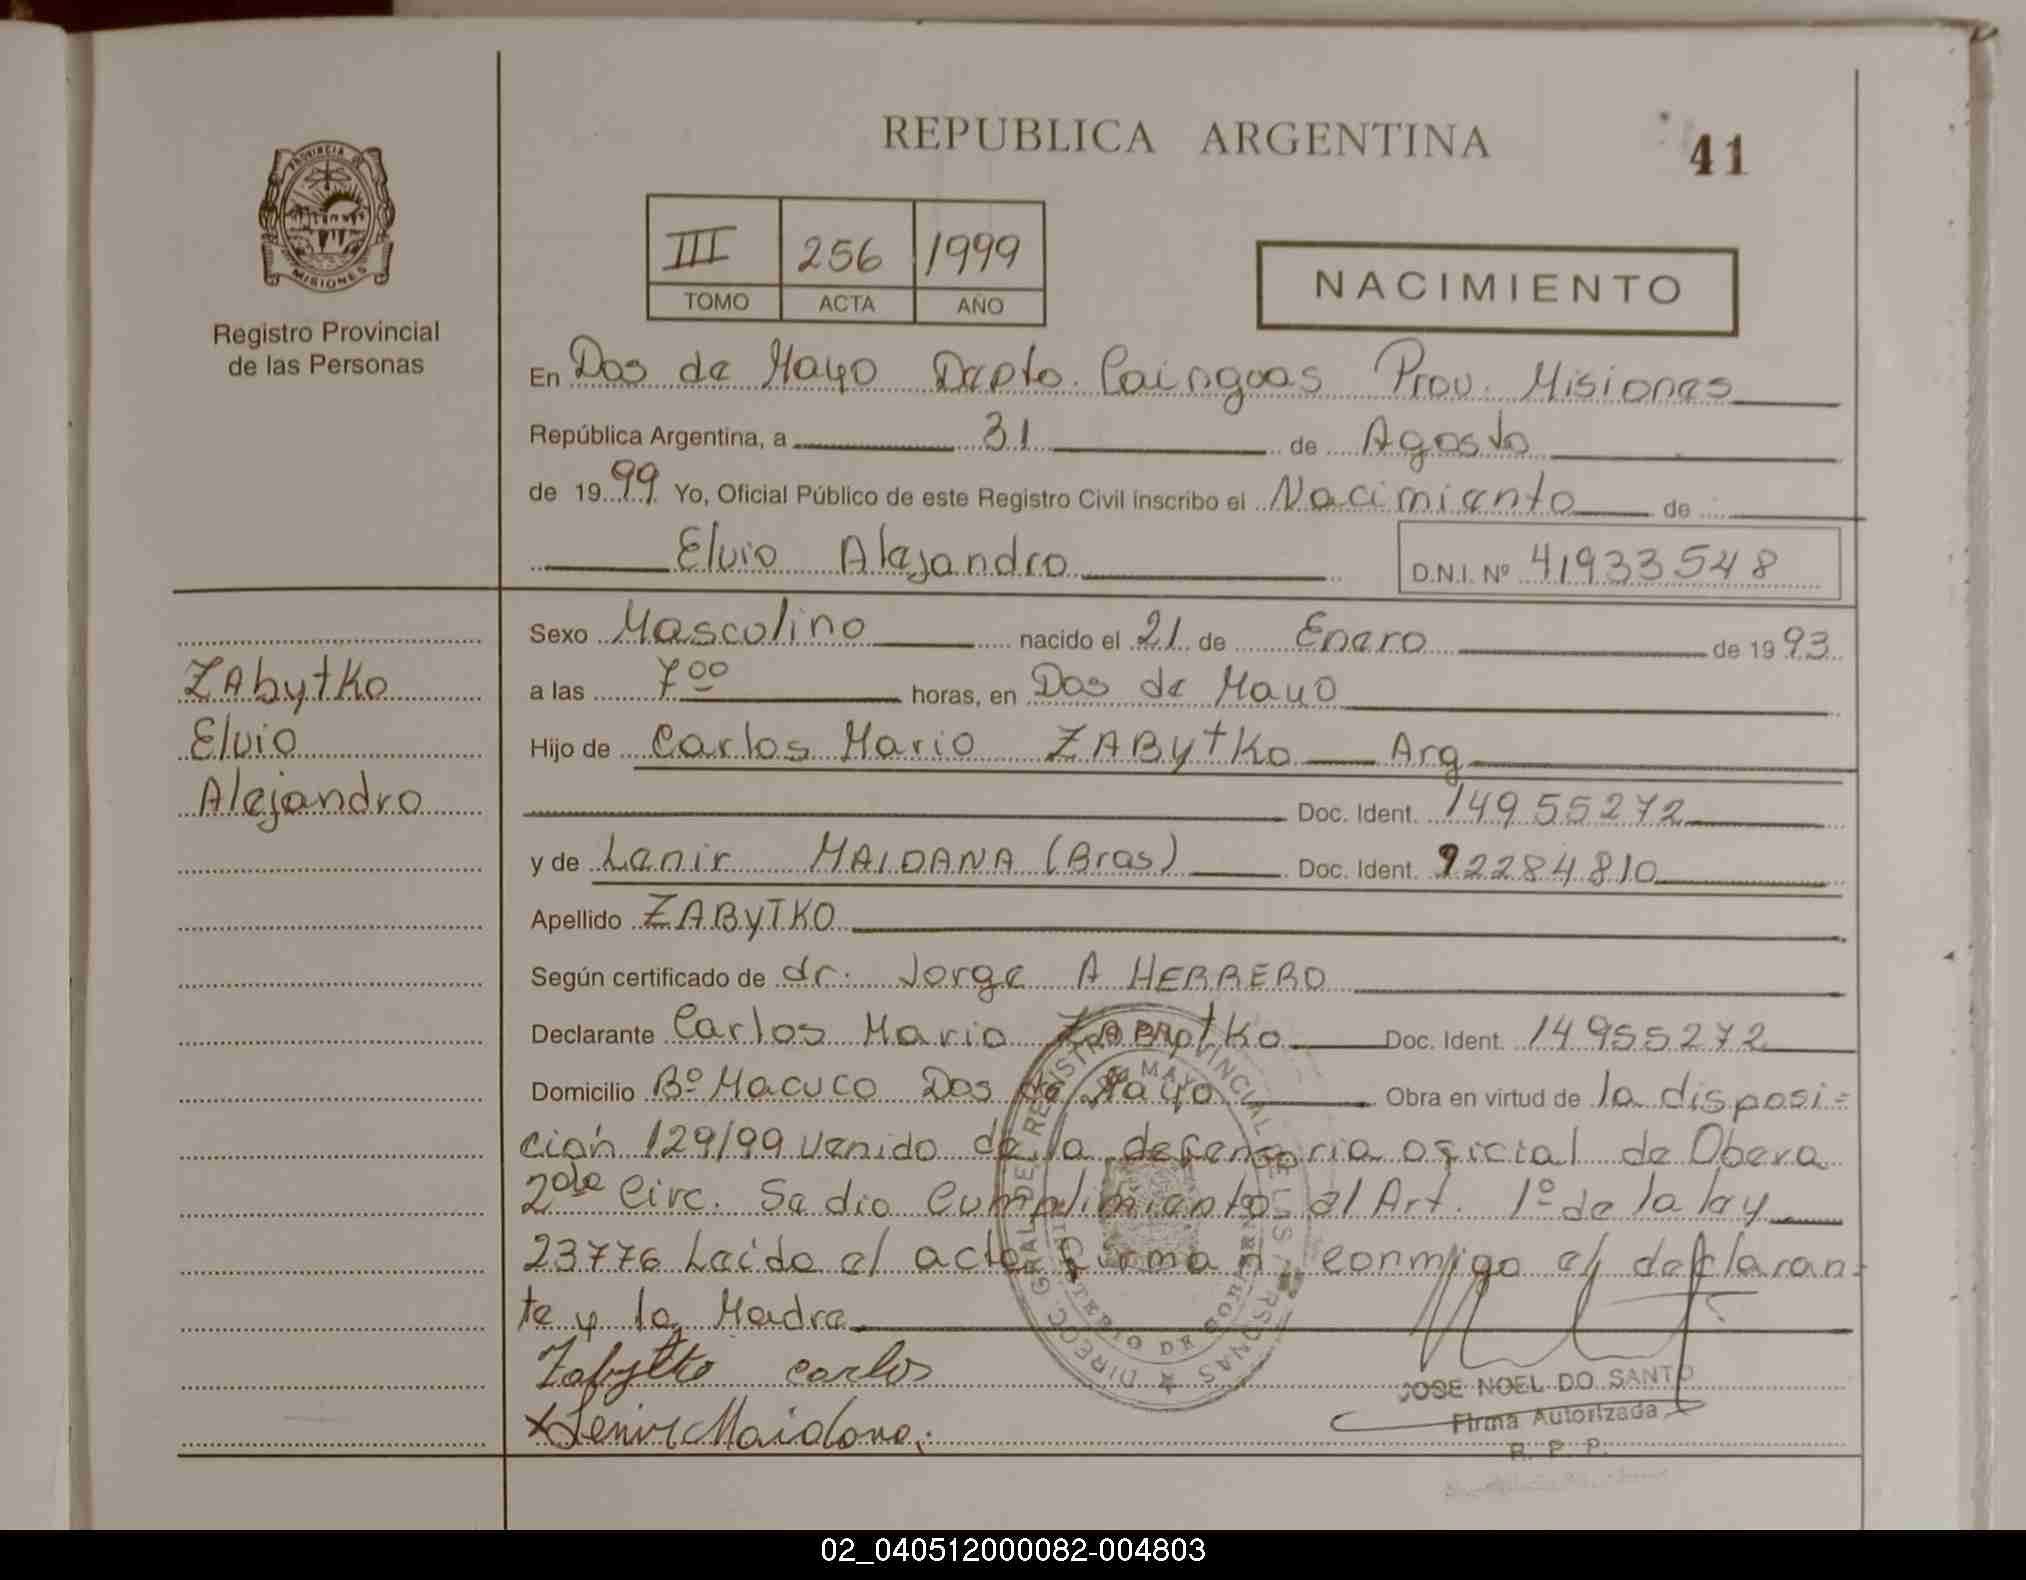 REPUBLICA ARGENTINA
41
PROVINCIA DE
MISIONES
Registro Provincial
de las Personas
III 256 1999
TOMO ACTA AÑO
NACIMIENTO
En Dos de Mayo Depto. Cainguas Prov. Misiones
República Argentina, a 31 de Agosto
de 1999 Yo, Oficial Público de este Registro Civil inscribo el Nacimiento de
Elvio Alejandro
D.N.I. Nº 41933548
Zabytko
Elvio
Alejandro
Sexo Masculino nacido el 21 de Enero de 1993
a las 7 00 horas, en Dos de Mayo
Hijo de Carlos Mario ZABytKo Arg
Doc. Ident. 14955272
y de Lenir MAIDANA (Bras) Doc. Ident. 92284810
Apellido ZAByTKO
Según certificado de dr. Jorge A HERRERO
Declarante Carlos Mario Zabytko Doc. Ident. 14955272
Domicilio Bº Macuco Dos de Mayo Obra en virtud de la disposi=
ción 129/99 venido de la defensoria oficial de Obera
2da Circ. Se dio Cumplimiento al Art. 1º de la ley
23776 Leído el acta firma n conmigo el declaran-
te y la Madre
Zabytko carlos
x Lenir Maidana.
JOSE NOEL DO SANTO
Firma Autorizada
R. P. P.
02_040512000082-004803